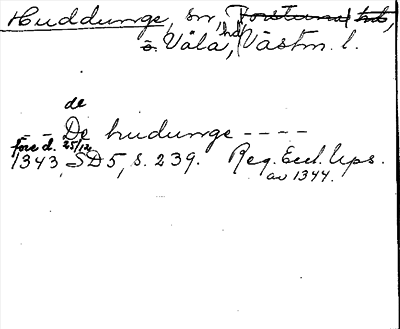 Huddunge, sn, Torstuna hd,
ö. Våla, hd, Västm. l.
de
– – De hudunge – – – –
före d. 25/12
1343, SD 5, s. 239. Reg. Eccl. Ups.
av 1344.